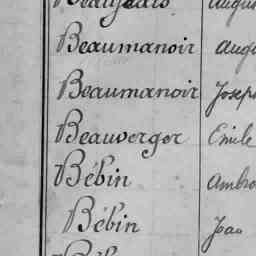 Beaumanoir Augu
Beaumanoir Joseph
Beauverger Emile
Bébin Ambro
Bébin Jean